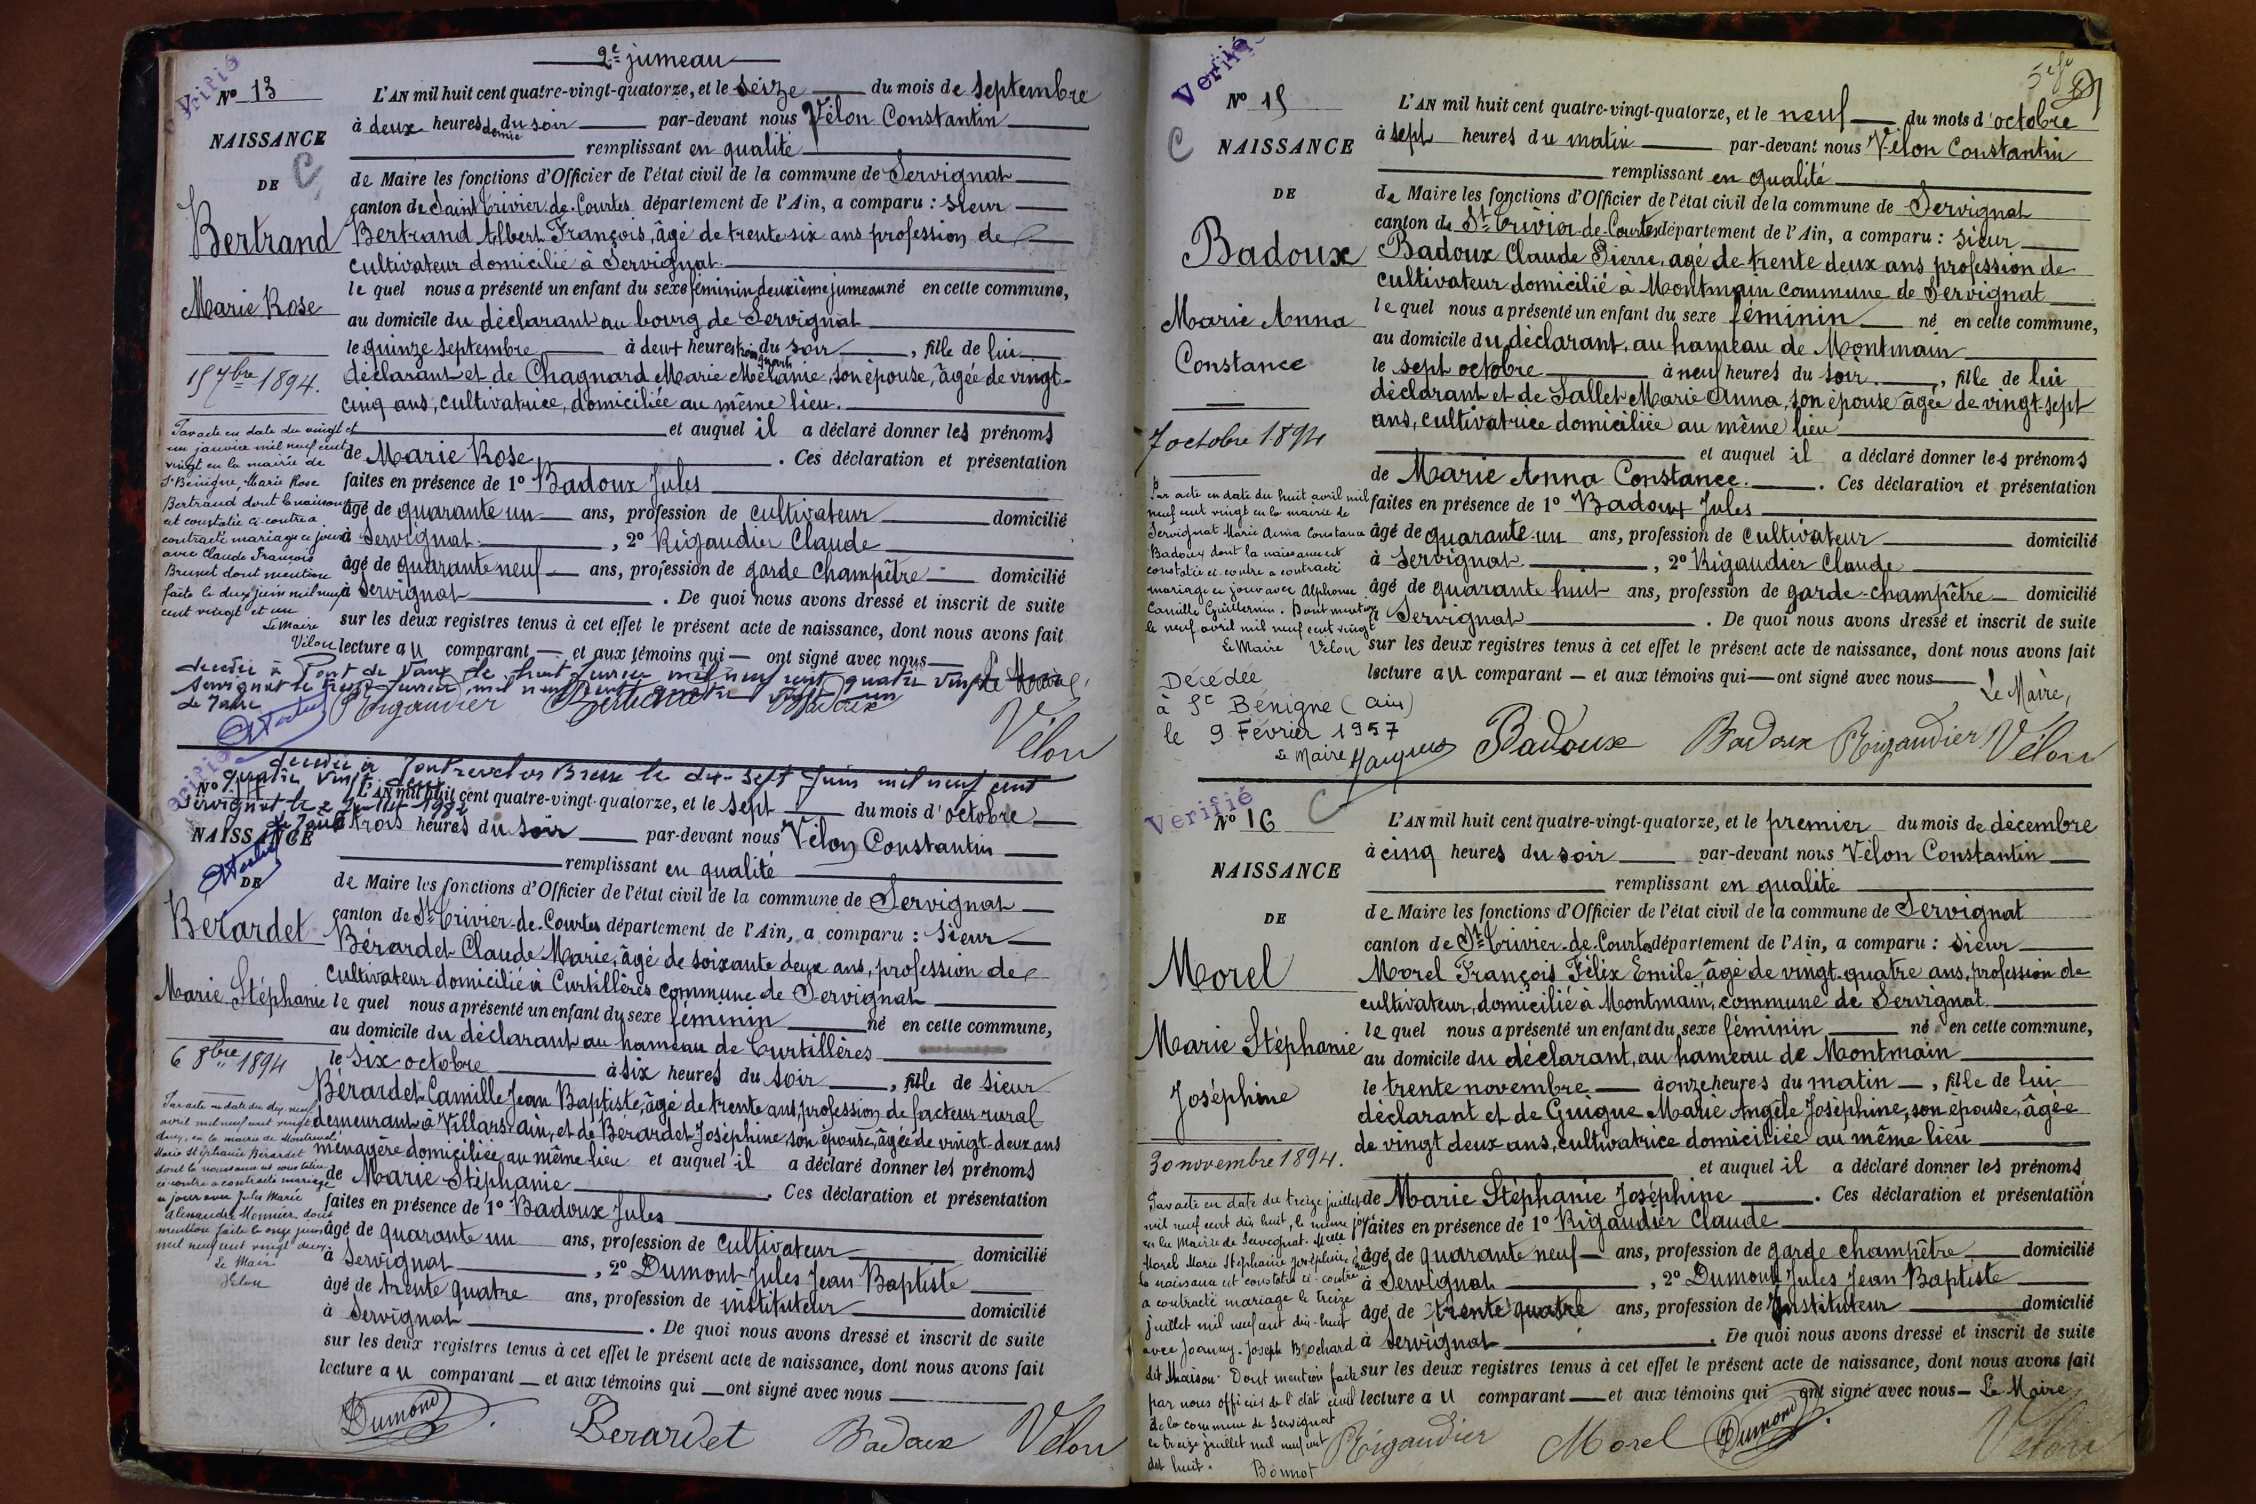 2e jumeau
Vérifié
No 13
NAISSANCE
C
DE
Bertrand
Marie Rose
15 7bre 1894.
Par acte en date du vingt et
un janvier mil neuf cent
vingt en la mairie de
St Bénigne, Marie Rose
Bertrand dont la naissance
est constatée ci-contre a
contracté mariage ce jour
avec Claude François
Brunet dont mention
faite le deux juin mil neuf
cent vingt et un
Le Maire
Vélon
L'AN mil huit cent quatre-vingt-quatorze, et le seize du mois de septembre
à deux heures demie du soir par-devant nous Vélon Constantin
remplissant en qualité
de Maire les fonctions d'Officier de l'état civil de la commune de Servignat
canton de Saint Trivier-de-Courtes département de l'Ain, a comparu : sieur
Bertrand Albert François, âgé de trente six ans profession de
cultivateur domicilié à Servignat.
le quel nous a présenté un enfant du sexe féminin deuxième jumeau né en cette commune,
au domicile du déclarant au bourg de Servignat
le quinze septembre à deux heures trois quarts du soir, fille de lui
déclarant et de Chagnard Marie Mélanie, son épouse, âgée de vingt-
cinq ans, cultivatrice, domiciliée au même lieu.
et auquel il a déclaré donner les prénoms
de Marie Rose. Ces déclaration et présentation
faites en présence de 1o Badoux Jules
âgé de quarante un ans, profession de cultivateur domicilié
à Servignat, 2o Rigaudier Claude
âgé de quarante neuf ans, profession de garde champêtre domicilié
à Servignat. De quoi nous avons dressé et inscrit de suite
sur les deux registres tenus à cet effet le présent acte de naissance, dont nous avons fait
lecture au comparant et aux témoins qui ont signé avec nous Le Maire,
décédée à Pont de Vaux le huit février mil neuf cent quatre vingt
Servignat le février mil neuf cent quatre vingt un
le Maire
Rigaudier Bertrand Badoux
Vélon
Vérifié
décédée à Montrevel en Bresse le dix-sept Juin mil neuf cent
quatre vingt deux
Servignat le 2 Juillet 1982
le Maire
No
NAISSANCE
DE
Berardet
Marie Stéphanie
6 8bre 1894
Par acte en date du dix neuf
avril mil neuf cent vingt
deux, en la mairie de Montrevel
Marie Stéphanie Bérardet
dont la naissance est constatée
ci-contre a contracté mariage
ce jour avec Jules Marie
Alexandre Monnier dont
mention faite le onze juin
mil neuf cent vingt deux
Le Maire
Vélon
L'AN mil huit cent quatre-vingt-quatorze, et le sept du mois d'octobre
à trois heures du soir par-devant nous Vélon Constantin
remplissant en qualité
de Maire les fonctions d'Officier de l'état civil de la commune de Servignat
canton de St Trivier-de-Courtes département de l'Ain, a comparu : sieur
Bérardet Claude Marie, âgé de soixante deux ans, profession de
cultivateur domicilié à Curtillères commune de Servignat
le quel nous a présenté un enfant du sexe féminin né en cette commune,
au domicile du déclarant au hameau de Curtillères
le six octobre à six heures du soir, fille de sieur
Bérardet Camille Jean Baptiste, âgé de trente ans, profession de facteur rural
demeurant à Villars, ain, et de Bérardet Joséphine, son épouse, âgée de vingt-deux ans
ménagère domiciliée au même lieu et auquel il a déclaré donner les prénoms
de Marie Stéphanie. Ces déclaration et présentation
faites en présence de 1o Badoux Jules
âgé de quarante un ans, profession de cultivateur domicilié
à Servignat, 2o Dumont Jules Jean Baptiste
âgé de trente quatre ans, profession de instituteur domicilié
à Servignat. De quoi nous avons dressé et inscrit de suite
sur les deux registres tenus à cet effet le présent acte de naissance, dont nous avons fait
lecture au comparant et aux témoins qui ont signé avec nous
Dumond Berardet Badoux Vélon
Vérifié
No 15
C NAISSANCE
DE
Badoux
Marie Anna
Constance
7 octobre 1894
Par acte en date du huit avril mil
neuf cent vingt en la mairie de
Servignat Marie Anna Constance
Badoux dont la naissance est
constatée ci-contre a contracté
mariage ce jour avec Alphonse
Camille Guillermin. Dont mention
le neuf avril mil neuf cent vingt
Le Maire Vélon
Décédée
à St Bénigne (Ain)
le 9 Février 1957
Le Maire
5e fe
L'AN mil huit cent quatre-vingt-quatorze, et le neuf du mois d'octobre
à sept heures du matin par-devant nous Vélon Constantin
remplissant en qualité
de Maire les fonctions d'Officier de l'état civil de la commune de Servignat
canton de St Trivier-de-Courtes département de l'Ain, a comparu : sieur
Badoux Claude Pierre, agé de trente deux ans profession de
cultivateur domicilié à Montmain commune de Servignat
le quel nous a présenté un enfant du sexe féminin né en cette commune,
au domicile du déclarant, au hameau de Montmain
le sept octobre à neuf heures du soir, fille de lui
déclarant et de Sallet Marie Anna, son épouse âgée de vingt-sept
ans, cultivatrice domiciliée au même lieu
et auquel il a déclaré donner les prénoms
de Marie Anna Constance. Ces déclaration et présentation
faites en présence de 1o Badoux Jules
âgé de quarante-un ans, profession de cultivateur domicilié
à Servignat, 2o Rigaudier Claude
âgé de quarante huit ans, profession de garde-champêtre domicilié
à Servignat. De quoi nous avons dressé et inscrit de suite
sur les deux registres tenus à cet effet le présent acte de naissance, dont nous avons fait
lecture au comparant et aux témoins qui ont signé avec nous Le Maire,
Badoux Badoux Rigaudier Vélon
Vérifié
No 16 C
NAISSANCE
DE
Morel
Marie Stéphanie
Joséphine
30 novembre 1894.
Par acte en date du treize juillet
mil neuf cent dix huit, le même jour
en la Mairie de Servignat. Melle
Morel Marie Stéphanie Joséphine dont
la naissance est constatée ci-contre
a contracté mariage le treize
juillet mil neuf cent dix-huit
avec Joanny-Joseph Brochard
dit Maison. Dont mention faite
par nous officier de l'état civil
de la commune de Servignat
le treize juillet mil neuf cent
dix huit.
Bonnot
L'AN mil huit cent quatre-vingt-quatorze, et le premier du mois de décembre
à cinq heures du soir par-devant nous Vélon Constantin
remplissant en qualité
de Maire les fonctions d'Officier de l'état civil de la commune de Servignat
canton de St Trivier-de-Courtes département de l'Ain, a comparu : sieur
Morel François Félix Emile, âgé de vingt-quatre ans, profession de
cultivateur, domicilié à Montmain, commune de Servignat.
le quel nous a présenté un enfant du sexe féminin né en cette commune,
au domicile du déclarant, au hameau de Montmain
le trente novembre à onze heures du matin, fille de lui
déclarant et de Guigue Marie Angèle Joséphine, son épouse, âgée
de vingt deux ans, cultivatrice domiciliée au même lieu
et auquel il a déclaré donner les prénoms
de Marie Stéphanie Joséphine. Ces déclaration et présentation
faites en présence de 1o Rigaudier Claude
âgé de quarante neuf ans, profession de garde champêtre domicilié
à Servignat, 2o Dumont Jules Jean Baptiste
âgé de trente quatre ans, profession de Instituteur domicilié
à Servignat. De quoi nous avons dressé et inscrit de suite
sur les deux registres tenus à cet effet le présent acte de naissance, dont nous avons fait
lecture au comparant et aux témoins qui ont signé avec nous Le Maire
Rigaudier Morel Dumond Vélon